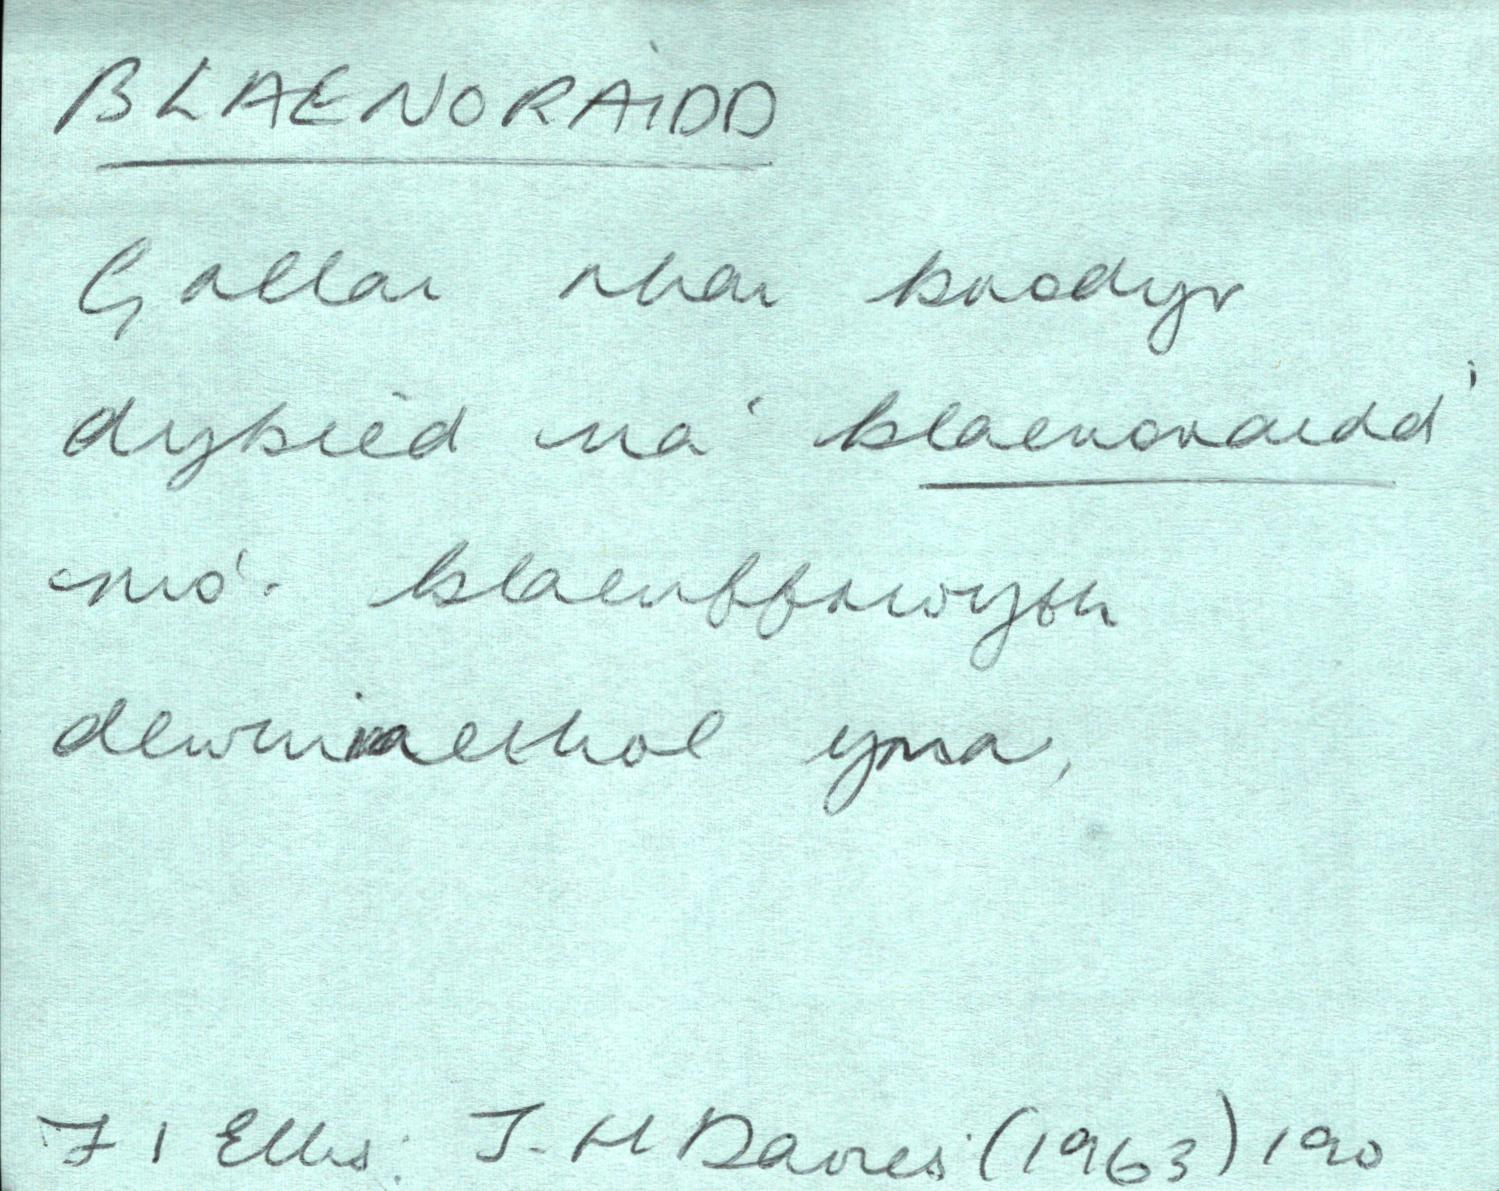 BLAENORAIDD
Gallai rhai brodyr
dybied na 'blaenoraidd'
mo'r blaenffrwyth
dewiniaethol yma,
T I Ellis: J. H Davies (1963) 190